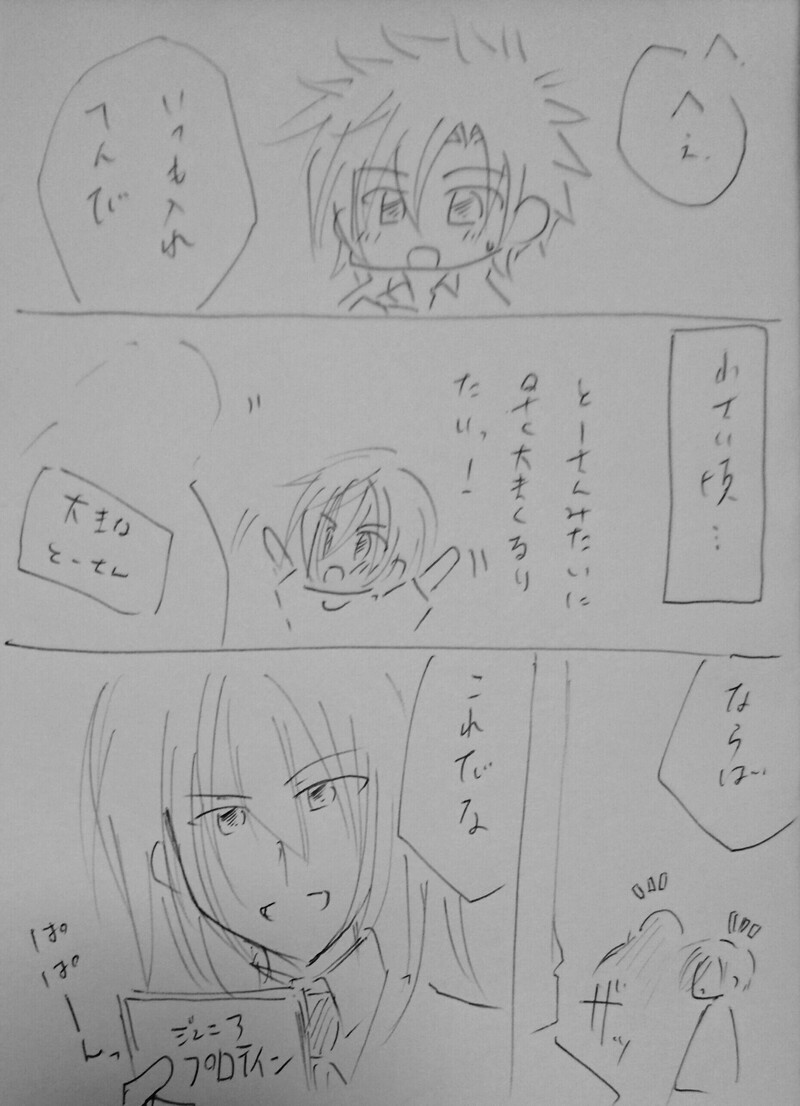 へ、
へぇ、
いつも入れ
へんで
小さい頃…
とーさんみたいに
早く大きくなり
たいっ!
大きな
とーさん
ならば…
ザッ
これでな
ぱぱーんっ
ジュニア
プロテイン